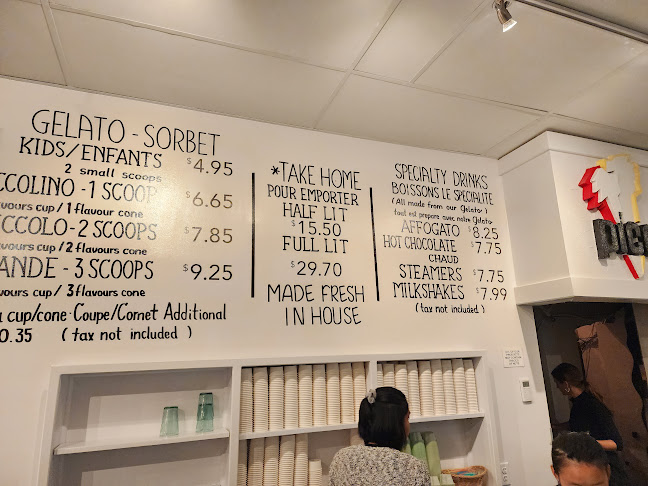 GELATO - SORBET
KIDS/ENFANTS $4.95
2 small scoops
CCOLINO - 1 SCOOP $6.65
vours cup / 1 flavour cone
CCOLO - 2 SCOOPS $7.85
avours cup / 2 flavours cone
ANDE - 3 SCOOPS $9.25
vours cup / 3 flavours cone
a cup/cone Coupe/Cornet Additional
0.35 ( tax not included )
*TAKE HOME
POUR EMPORTER
HALF LIT
$15.50
FULL LIT
$29.70
MADE FRESH
IN HOUSE
SPECIALTY DRINKS
BOISSONS LE SPECIALITE
( All made from our Gelato )
tout est prepare avec nôtre Gelato
AFFOGATO $8.25
HOT CHOCOLATE $7.75
CHAUD
STEAMERS $7.75
MILKSHAKES $7.99
( tax not included )